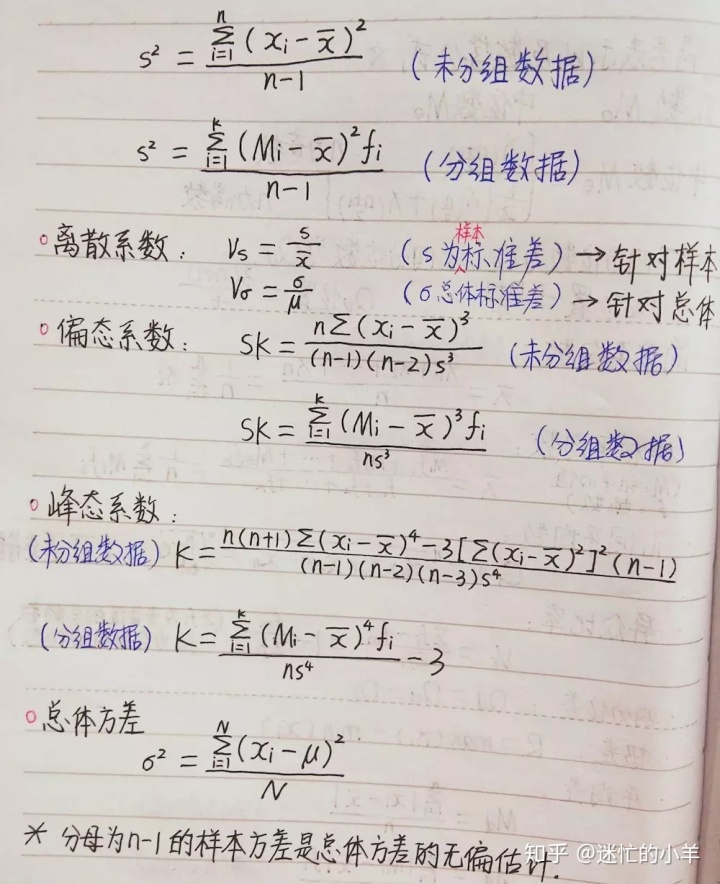 s² = \frac{\sum_{i=1}^{n}(x_i-\overline{x})^2}{n-1} (未分组数据)
s² = \frac{\sum_{i=1}^{k}(M_i-\overline{x})^2 f_i}{n-1} (分组数据)
离散系数: V_s = \frac{s}{\overline{x}} (s为样本标准差) → 针对样本
V_σ = \frac{σ}{μ} (σ总体标准差) → 针对总体
偏态系数: SK = \frac{n\sum(x_i-\overline{x})^3}{(n-1)(n-2)s^3} (未分组数据)
SK = \frac{\sum_{i=1}^{k}(M_i-\overline{x})^3 f_i}{ns^3} (分组数据)
峰态系数:
(未分组数据) K = \frac{n(n+1)\sum(x_i-\overline{x})^4-3[\sum(x_i-\overline{x})^2]^2(n-1)}{(n-1)(n-2)(n-3)s^4}
(分组数据) K = \frac{\sum_{i=1}^{k}(M_i-\overline{x})^4 f_i}{ns^4}-3
总体方差
σ² = \frac{\sum_{i=1}^{N}(x_i-μ)^2}{N}
* 分母为n-1的样本方差是总体方差的无偏估计.
知乎 @迷忙的小羊